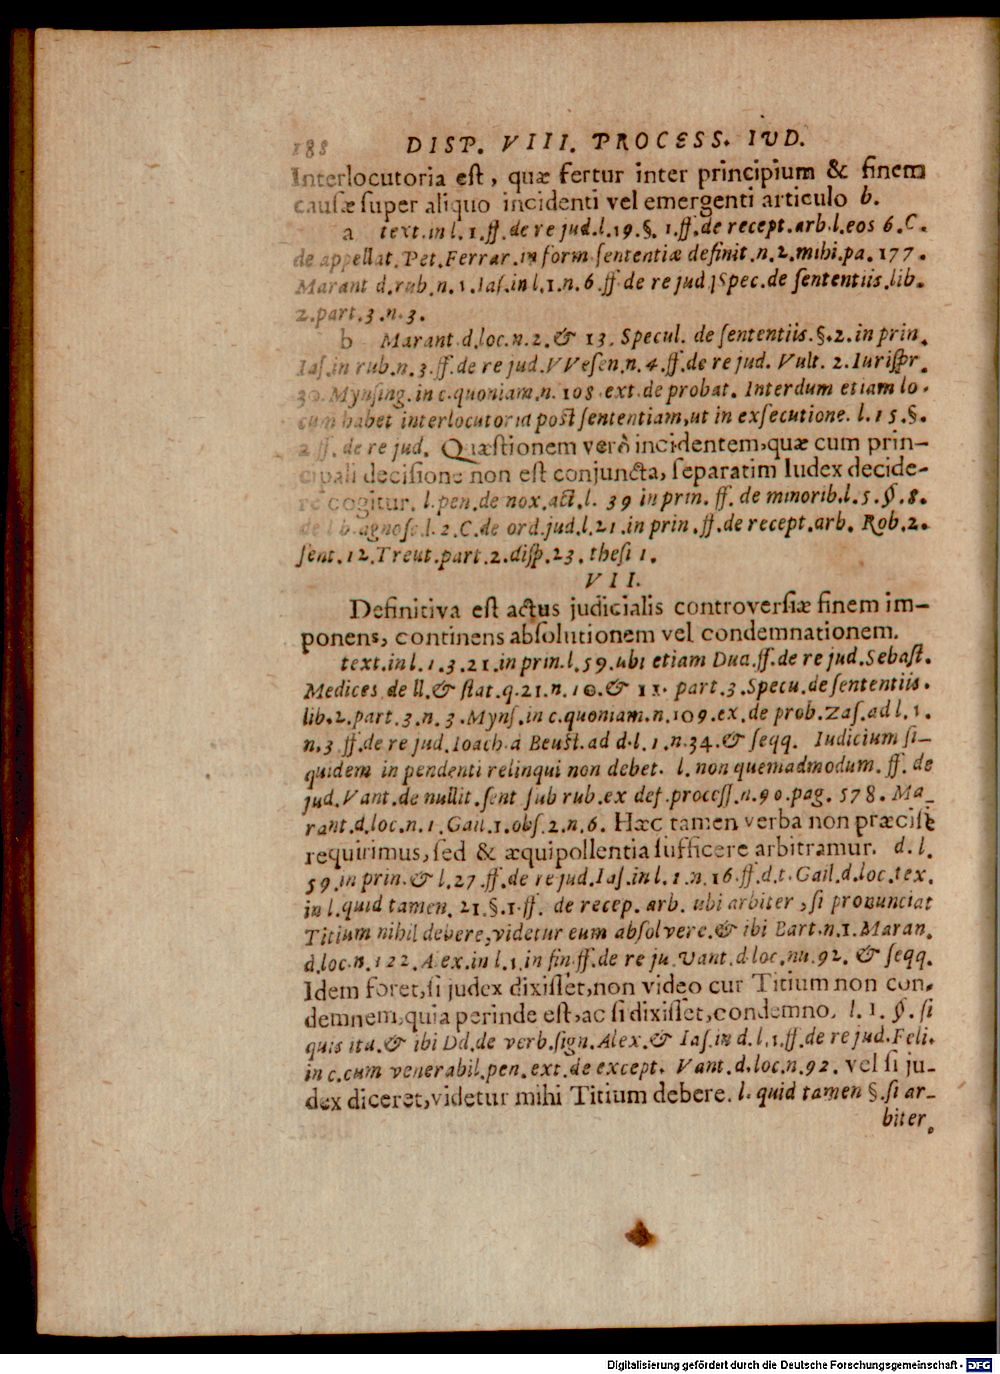 188 DISP. VIII. PROCESS. IVD.
Interlocutoria est, quæ fertur inter principium & finem
causæ super aliquo incidenti vel emergenti articulo b.
a text. in l. 1. ff. de re jud. l. 19. §. 1. ff. de recept. arb. l. eos 6. C.
de appellat. Pet. Ferrar. in form sententiæ definit. n. 2. mihi. pa. 177.
Marant d. rub. n. 1. Ias. in l. 1. n. 6. ff. de re jud. Spec. de sententiis. lib.
2. part. 3. n. 3.
b Marant. d. loc. n. 2. & 13. Specul. de sententiis. §. 2. in prin.
Ias. in rub. n. 3. ff. de re jud. VVesen. n. 4. ff. de re jud. Vult. 2. Iurispr.
30. Mynsing. in c. quoniam. n. 108. ext. de probat. Interdum etiam lo-
cum habet interlocutoria post sententiam, ut in exsecutione. l. 15. §.
2. ff. de re jud. Quæstionem verò incidentem, quæ cum prin-
cipali decisione non est conjuncta, separatim Iudex decide-
re cogitur. l. pen. de nox. act. l. 39 in prin. ff. de minorib. l. 5. §. 8.
de l b. agnosc. l. 2. C. de ord. jud. l. 21. in prin. ff. de recept. arb. Rob. 2.
sent. 12. Treut. part. 2. disp. 23. thesi 1.
VII.
Definitiva est actus judicialis controversiæ finem im-
ponens, continens absolutionem vel condemnationem.
text. in l. 1. 3. 21. in prin. l. 59. ubi etiam Dua. ff. de re jud. Sebast.
Medices de ll. & stat. q. 21. n. 10. & 11. part. 3. Specu. de sententiis.
lib. 2. part. 3. n. 3. Myns. in c. quoniam. n. 109. ex. de prob. Zas. ad l. 1.
n. 3 ff. de re jud. Ioach. a Beust. ad d. l. 1. n. 34. & seqq. Iudicium si-
quidem in pendenti relinqui non debet. l. non quemadmodum. ff. de
jud. Vant. de nullit. sent sub rub. ex def. process. n. 90. pag. 578. Ma-
rant. d. loc. n. 1. Gail. 1. obs. 2. n. 6. Hæc tamen verba non præcisè
requirimus, sed & æquipollentia sufficere arbitramur. d. l.
59. in prin. & l. 27. ff. de re jud. Ias. in l. 1. n. 16. ff. d. t. Gail. d. loc. tex.
in l. quid tamen. 21. §. 1. ff. de recep. arb. ubi arbiter, si pronunciat
Titium nihil debere, videtur eum absolvere. & ibi Bart. n. 1. Maran.
d. loc. n. 122. A ex. in l. 1. in fin. ff. de re ju. Vant. d. loc. nu. 92. & seqq.
Idem foret, si judex dixisset, non video cur Titium non con-
demnem, quia perinde est, ac si dixisset, condemno. l. 1. §. si
quis ita. & ibi Dd. de verb. sign. Alex. & Ias. in d. l. 1. ff. de re jud. Feli.
in c. cum venerabil. pen. ext. de except. Vant. d. loc. n. 92. vel si ju-
dex diceret, videtur mihi Titium debere. l. quid tamen §. si ar-
biter.
Digitalisierung gefördert durch die Deutsche Forschungsgemeinschaft - DFG